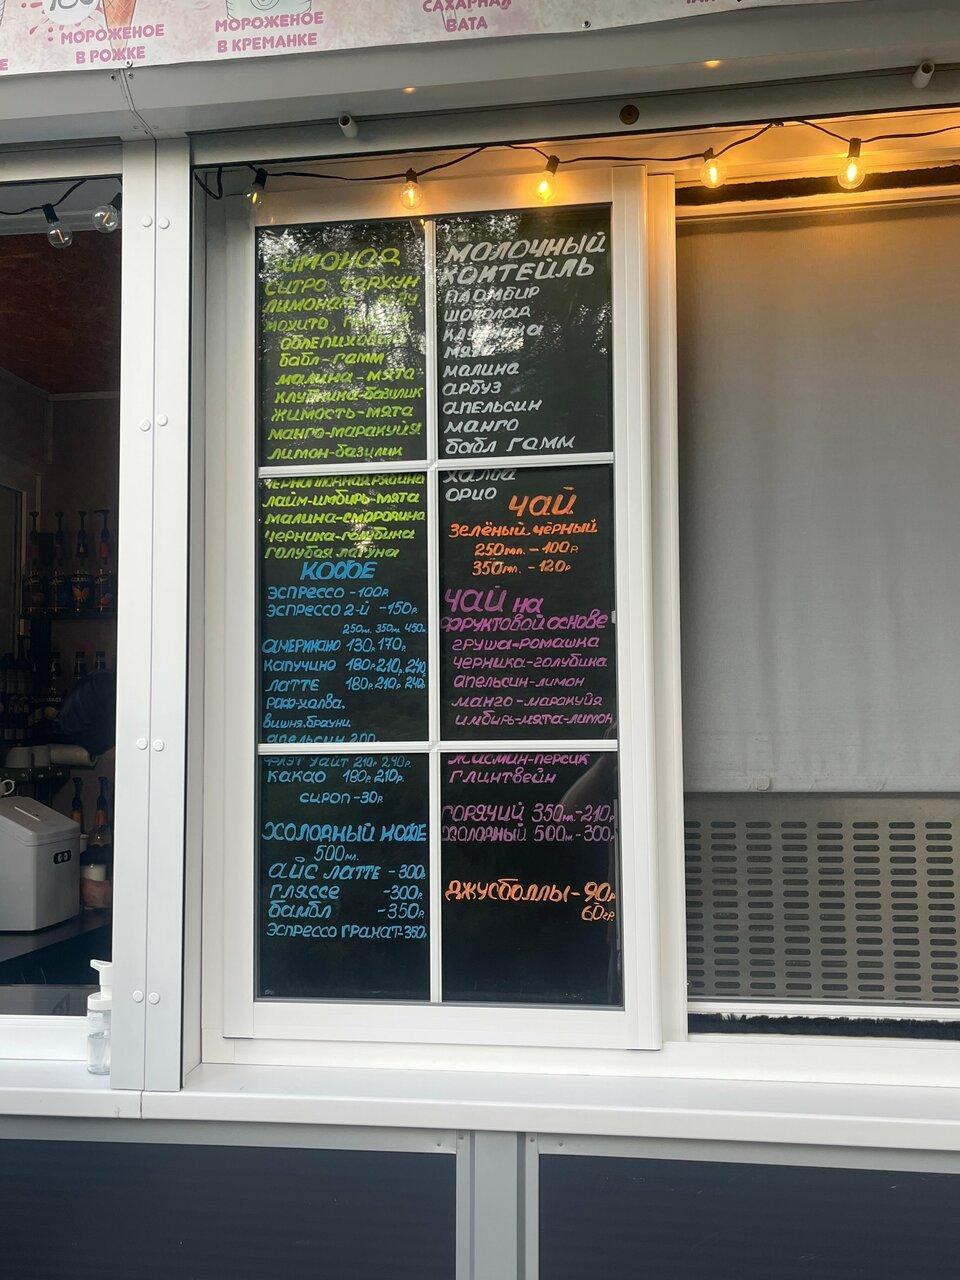 МОРОЖЕНОЕ
В РОЖКЕ
МОРОЖЕНОЕ
В КРЕМАНКЕ
САХАРНАЯ
ВАТА
ЛИМОНАД
СИТРО ТАРХУН
ЛИМОНАД
МОХИТО
ОБЛЕПИХОВЫЙ
БАБЛ-ГАММ
МАЛИНА-МЯТА
КЛУБНИКА-БАЗИЛИК
ЖИМОСТЬ-МЯТА
МАНГО-МАРАКУЙЯ
ЛИМОН-БАЗИЛИК
ЧЕРНОПЛОДНАЯ РЯБИНА
ЛАЙМ-ИМБИРЬ-МЯТА
МАЛИНА-СМОРОДИНА
ЧЕРНИКА-ГОЛУБИКА
ГОЛУБАЯ ЛАГУНА
КОФЕ
ЭСПРЕССО -100Р.
ЭСПРЕССО 2-Й -150Р.
250мл. 350мл. 450мл.
АМЕРИКАНО 130Р.170Р.
КАПУЧИНО 180Р.210Р.240Р.
ЛАТТЕ 180Р.210Р.240Р.
РАФ-ХАЛВА,
ВИШНЯ.БРАУНИ.
АПЕЛЬСИН 200
ФЛЭТ УАЙТ 210Р. 240Р.
КАКАО 180Р.210Р.
СИРОП-30Р.
ХОЛОДНЫЙ КОФЕ
500мл.
АЙС ЛАТТЕ -300Р.
ГЛЯССЕ -300Р.
БАМБЛ -350Р.
ЭСПРЕССО ГРАНАТ-350Р.
МОЛОЧНЫЙ
КОКТЕЙЛЬ
ПЛОМБИР
ШОКОЛАД
КЛУБНИКА
МЯТА
МАЛИНА
АРБУЗ
АПЕЛЬСИН
МАНГО
БАБЛ ГАММ
ХАЛВА
ОРИО
ЧАЙ
ЗЕЛЁНЫЙ.ЧЁРНЫЙ
250мл. - 100Р.
350мл. - 120Р.
ЧАЙ НА
ФРУКТОВОЙ ОСНОВЕ
ГРУША-РОМАШКА
ЧЕРНИКА-ГОЛУБИКА
АПЕЛЬСИН-ЛИМОН
МАНГО-МАРАКУЙЯ
ИМБИРЬ-МЯТА-ЛИМОН
ЖАСМИН-ПЕРСИК
ГЛИНТВЕЙН
ГОРЯЧИЙ 350мл.-210Р.
ХОЛОДНЫЙ 500мл.-300Р.
ДЖУСБОЛЛЫ-90Р.
60гр.